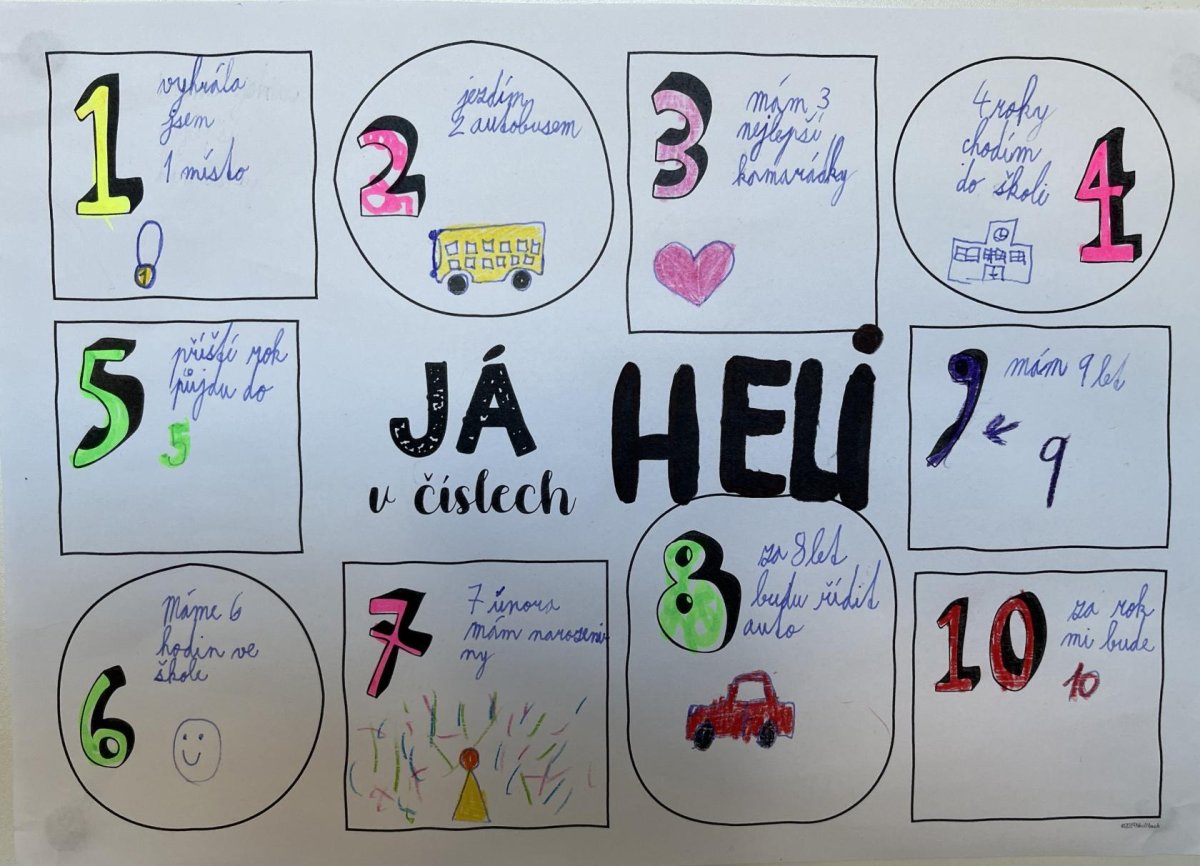 1
vyhrála
jsem
1 místo
1
2
jezdím
2 autobusem
3
mám 3
nejlepší
kamarádky
4 roky
chodím
do školi
4
5
příští rok
půjdu do
5
JÁ
v číslech
HELI
9
mám 9 let
9
6
Máme 6
hodin ve
škole
7
7 února
mám narozeni-
ny
8
za 8 let
budu řídit
auto
10
za rok
mi bude
10